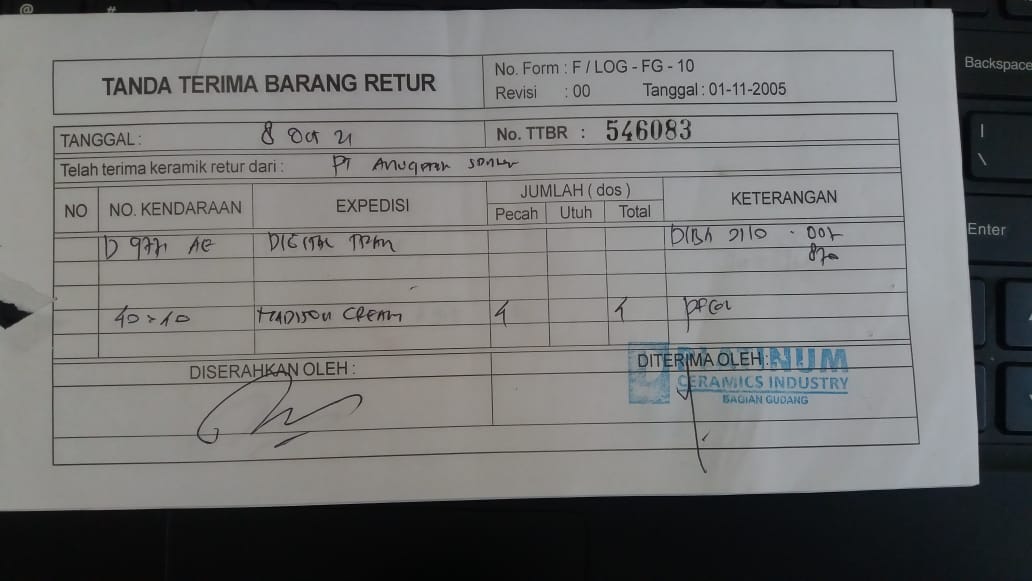 TANDA TERIMA BARANG RETUR
No. Form : F / LOG - FG - 10
Revisi : 00 Tanggal : 01-11-2005
TANGGAL : 8 Oct 21 No. TTBR : 546083
Telah terima keramik retur dari : PT
NO NO. KENDARAAN EXPEDISI JUMLAH ( dos ) KETERANGAN
Pecah Utuh Total
D 9771 AE DIGITAL
870
40 x 40 MADISON CREAM 4 4
DISERAHKAN OLEH : DITERIMA OLEH :
PLATINUM
CERAMICS INDUSTRY
BAGIAN GUDANG
@
#
Backspace
|
\
Enter